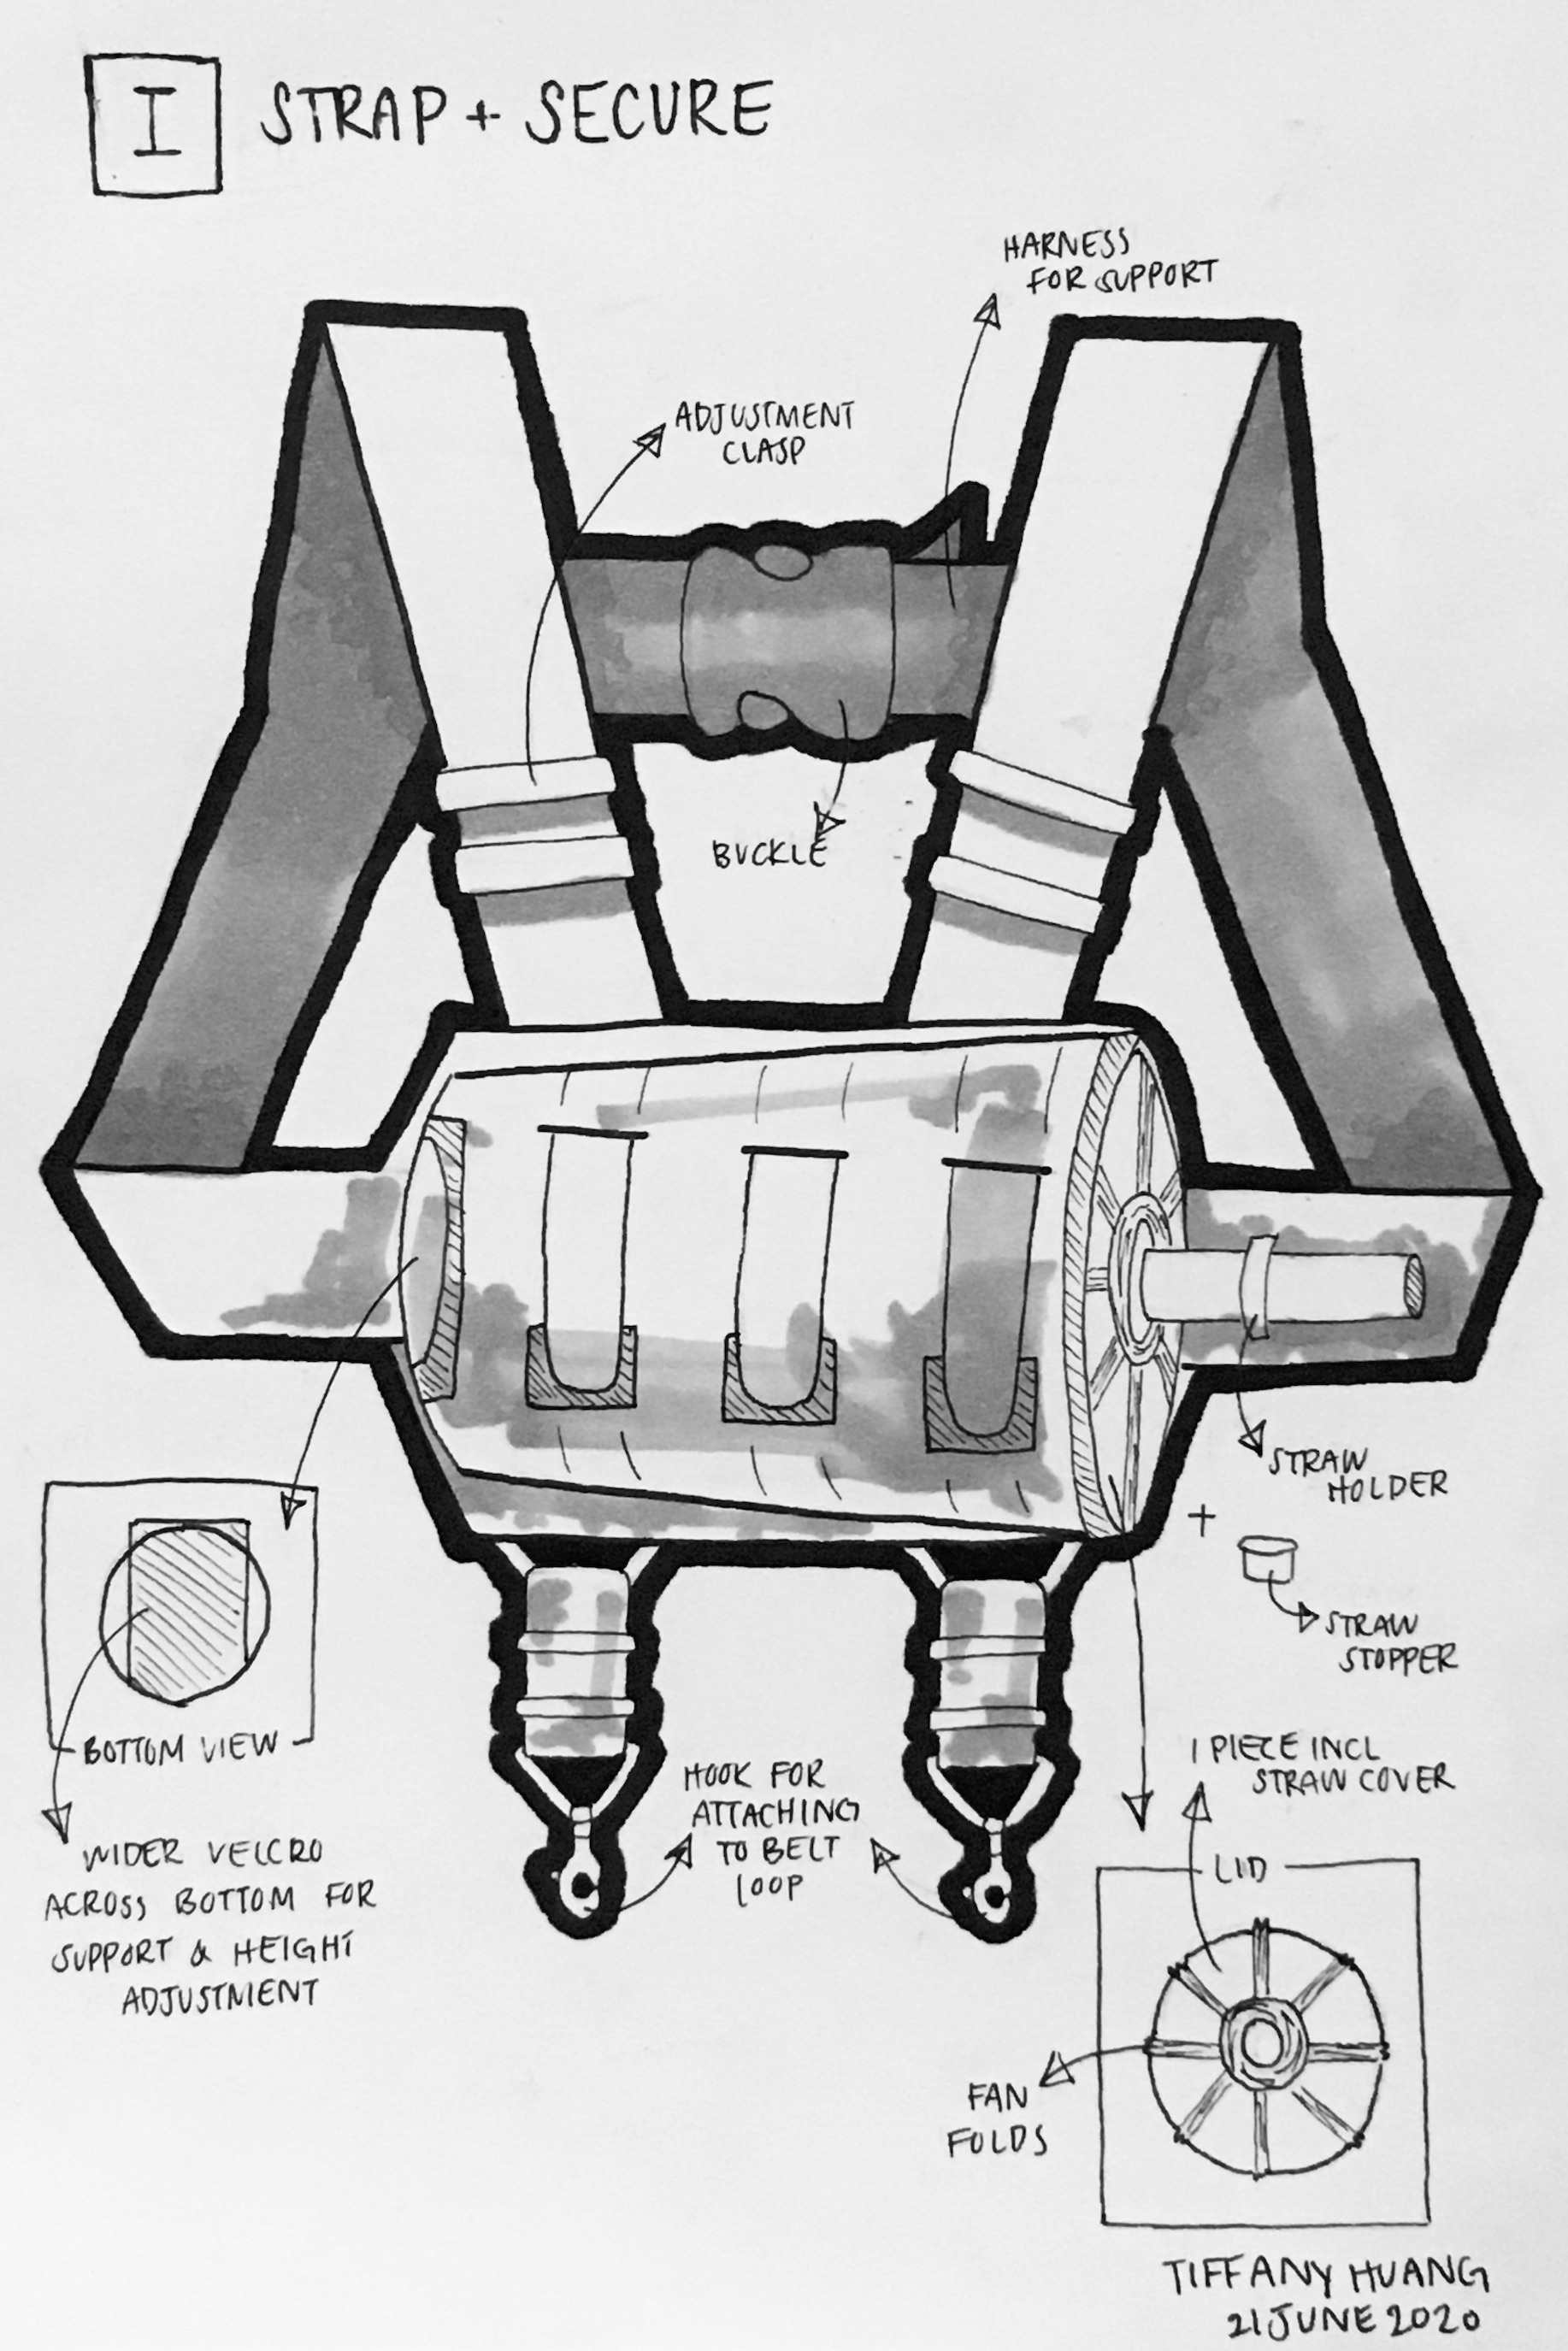 I STRAP + SECURE
HARNESS
FOR SUPPORT
ADJUSTMENT
CLASP
BUCKLE
STRAW
HOLDER
+
STRAW
STOPPER
BOTTOM VIEW
WIDER VELCRO
ACROSS BOTTOM FOR
SUPPORT & HEIGHT
ADJUSTMENT
HOOK FOR
ATTACHING
TO BELT
LOOP
1 PIECE INCL
STRAW COVER
LID
FAN
FOLDS
TIFFANY HUANG
21 JUNE 2020